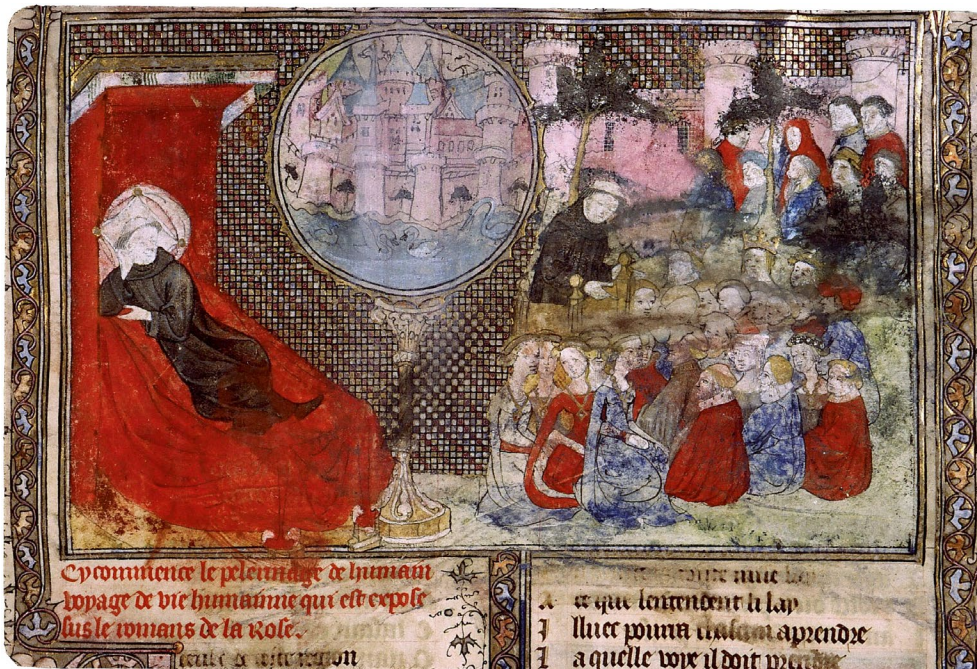 Cy commence le pelerinage de humain
voyage de vie humainne qui est expose
sus le romans de la Rose.
A ce que lentendent li lay
I lluec pourra chascun aprendre
I a quelle voye il doit prendre